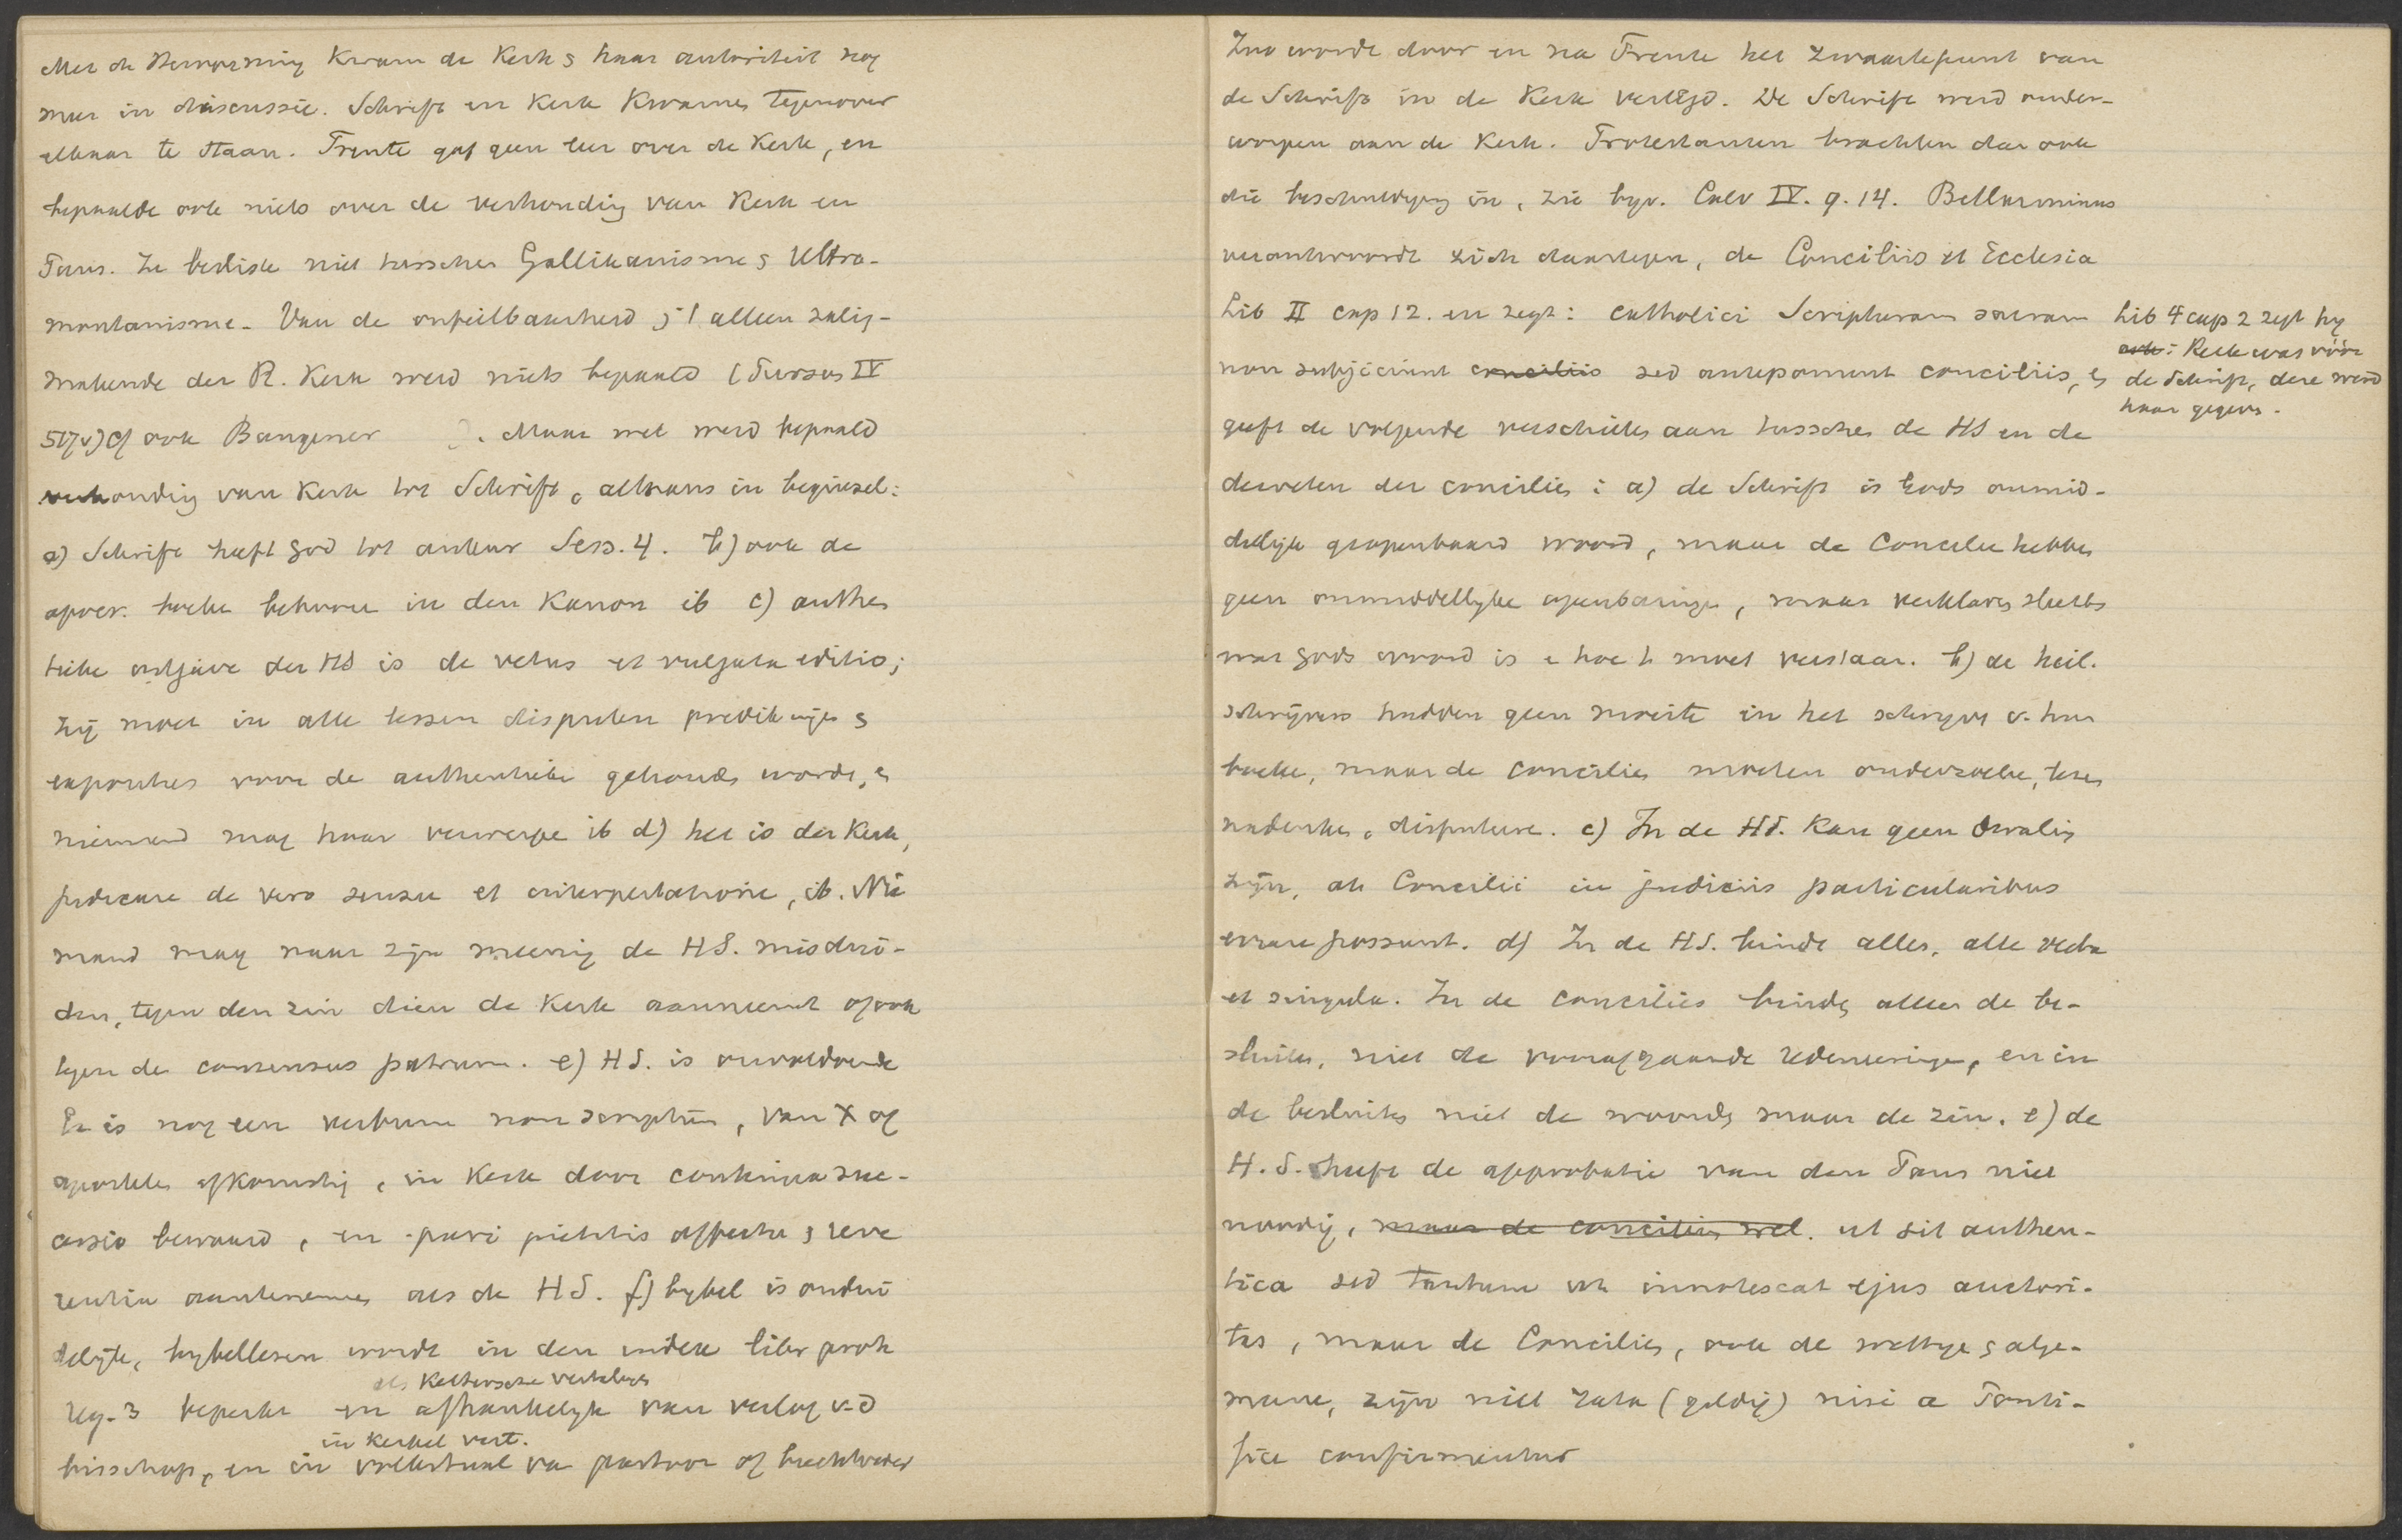 Met de Hervorming kwam de Kerk & haar autoriteit nog
meer in discussie. Schrift en Kerk kwamen tegenover
elkaar te staan. Trente gaf geen leer over de Kerk, en
bepaalde ook niets over de verhouding van Kerk en
Paus. Ze besliste niet tusschen Gallikanisme & Ultra-
montanisme. Van de onfeilbaarheid & 't alleen zalig-
makende der R. Kerk werd niets bepaald (Bursus IV
517v) cf ook Bangener . Maar wel werd bepaald
verhouding van Kerk tot Schrift, althans in beginsel:
a) Schrift heeft God tot auteur Sess. 4. b) ook de
apocr. boeken behooren in den Kanon ib c) authen
tieke uitgave der HS is de vetus et vulgata editio;
zij moet in alle lessen disputen predikingen &
exposities voor de authentieke gehouden worden, en
niemand mag haar verwerpen ib d) het is der Kerk,
judicare de vero sensu et interpretatione, ib. Nie
mand mag naar zijn meening de HS. misdui-
den, tegen den zin dien de Kerk aanneemt of ook
tegen den consensus patrum. e) HS. is onvoldoende
Er is nog een verbum non scriptum, van X of
apostelen afkomstig, in Kerk door continua suc-
cessio bewaard, en pari pietatis affectu & reve
rentia aantenemen als de HS. f) bybel is ondui
delijk, bybellezen wordt in den index libr proh
als Kettersche vertalingen
reg. 3 beperkt en afhankelyk van verlof v.d
in kerkel vert.
bisschop, en in volkstaal van pastoor of biechtvader
Zoo wordt door en na Trente het zwaartepunt van
de Schrift in de Kerk verlegd. De Schrift werd onder-
worpen aan de Kerk. Protestanten brachten dan ook
die beschuldiging in, zie bijv. Calv IV. 9. 14. Bellarminus
verantwoordt zich daartegen, de Conciliis et Ecclesia
Lib II cap 12. en zegt: catholici Scripturam sacram
non subjiciunt conciliis sed anteponunt conciliis, &
geeft de volgende verschillen aan tusschen de HS en de
decreten der concilien: a) de Schrift is Gods onmid-
dellijk geopenbaard woord, maar de Concilien hebben
geen onmiddellyke openbaringen, maar verklaren slechts
wat Gods woord is & hoe 't moet verstaan. b) de heil.
schrijvers hadden geen moeite in het schrijven v. hun
boeken, maar de concilien moeten onderzoeken, lezen
nadenken, disputeren. c) In de HS. kan geen dwaling
zijn, at Concilii in judiciis particularibus
errare possunt. d) In de HS. bindt alles, alle verba
et singula. In de concilies binden alleen de be-
sluiten, niet de voorafgaande redeneeringen, en in
de besluiten niet de woorden maar de zin. e) de
H.S. heeft de approbatie van den Paus niet
noodig, maar de concilien wel. ut sit authen-
tica sed tantum ut innotescat ejus auctori-
tas, maar de Concilien, ook de wettige & alge-
meene, zijn niet rata (geldig) nisi a Ponti-
fice confirmentur
Lib 4 cap 2 zegt hy
ook: Kerk was vóór
de Schrift, deze werd
haar gegeven.